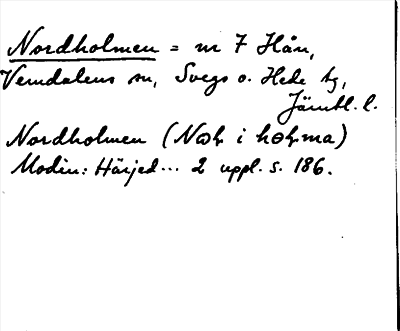 Nordholmen = nr 7 Hån,
Vemdalens sn, Svegs o. Hede tg,
Jämtl. l.
Nordholmen (i
Modin: Härjed... 2 uppl. s. 186.